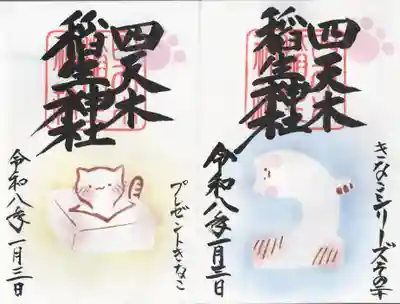 四天木
稲生神社
プレゼントきなこ
令和八年一月三日
四天木
稲生神社
きなこシリーズその
令和八年一月三日